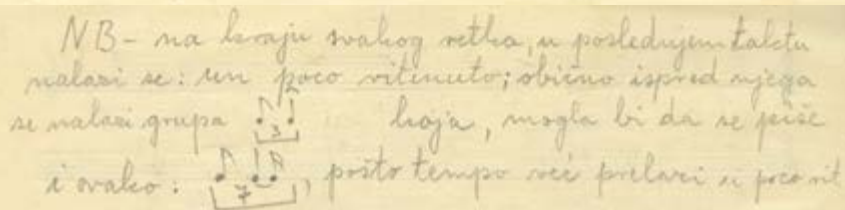 NB - na kraju svakog retka, u poslednjem taktu
nalazi se: un poco ritenuto; obično ispred njega
se nalazi grupa 3 koja, mogla bi da se piše
i ovako: 7, pošto tempo već prelazi u poco rit